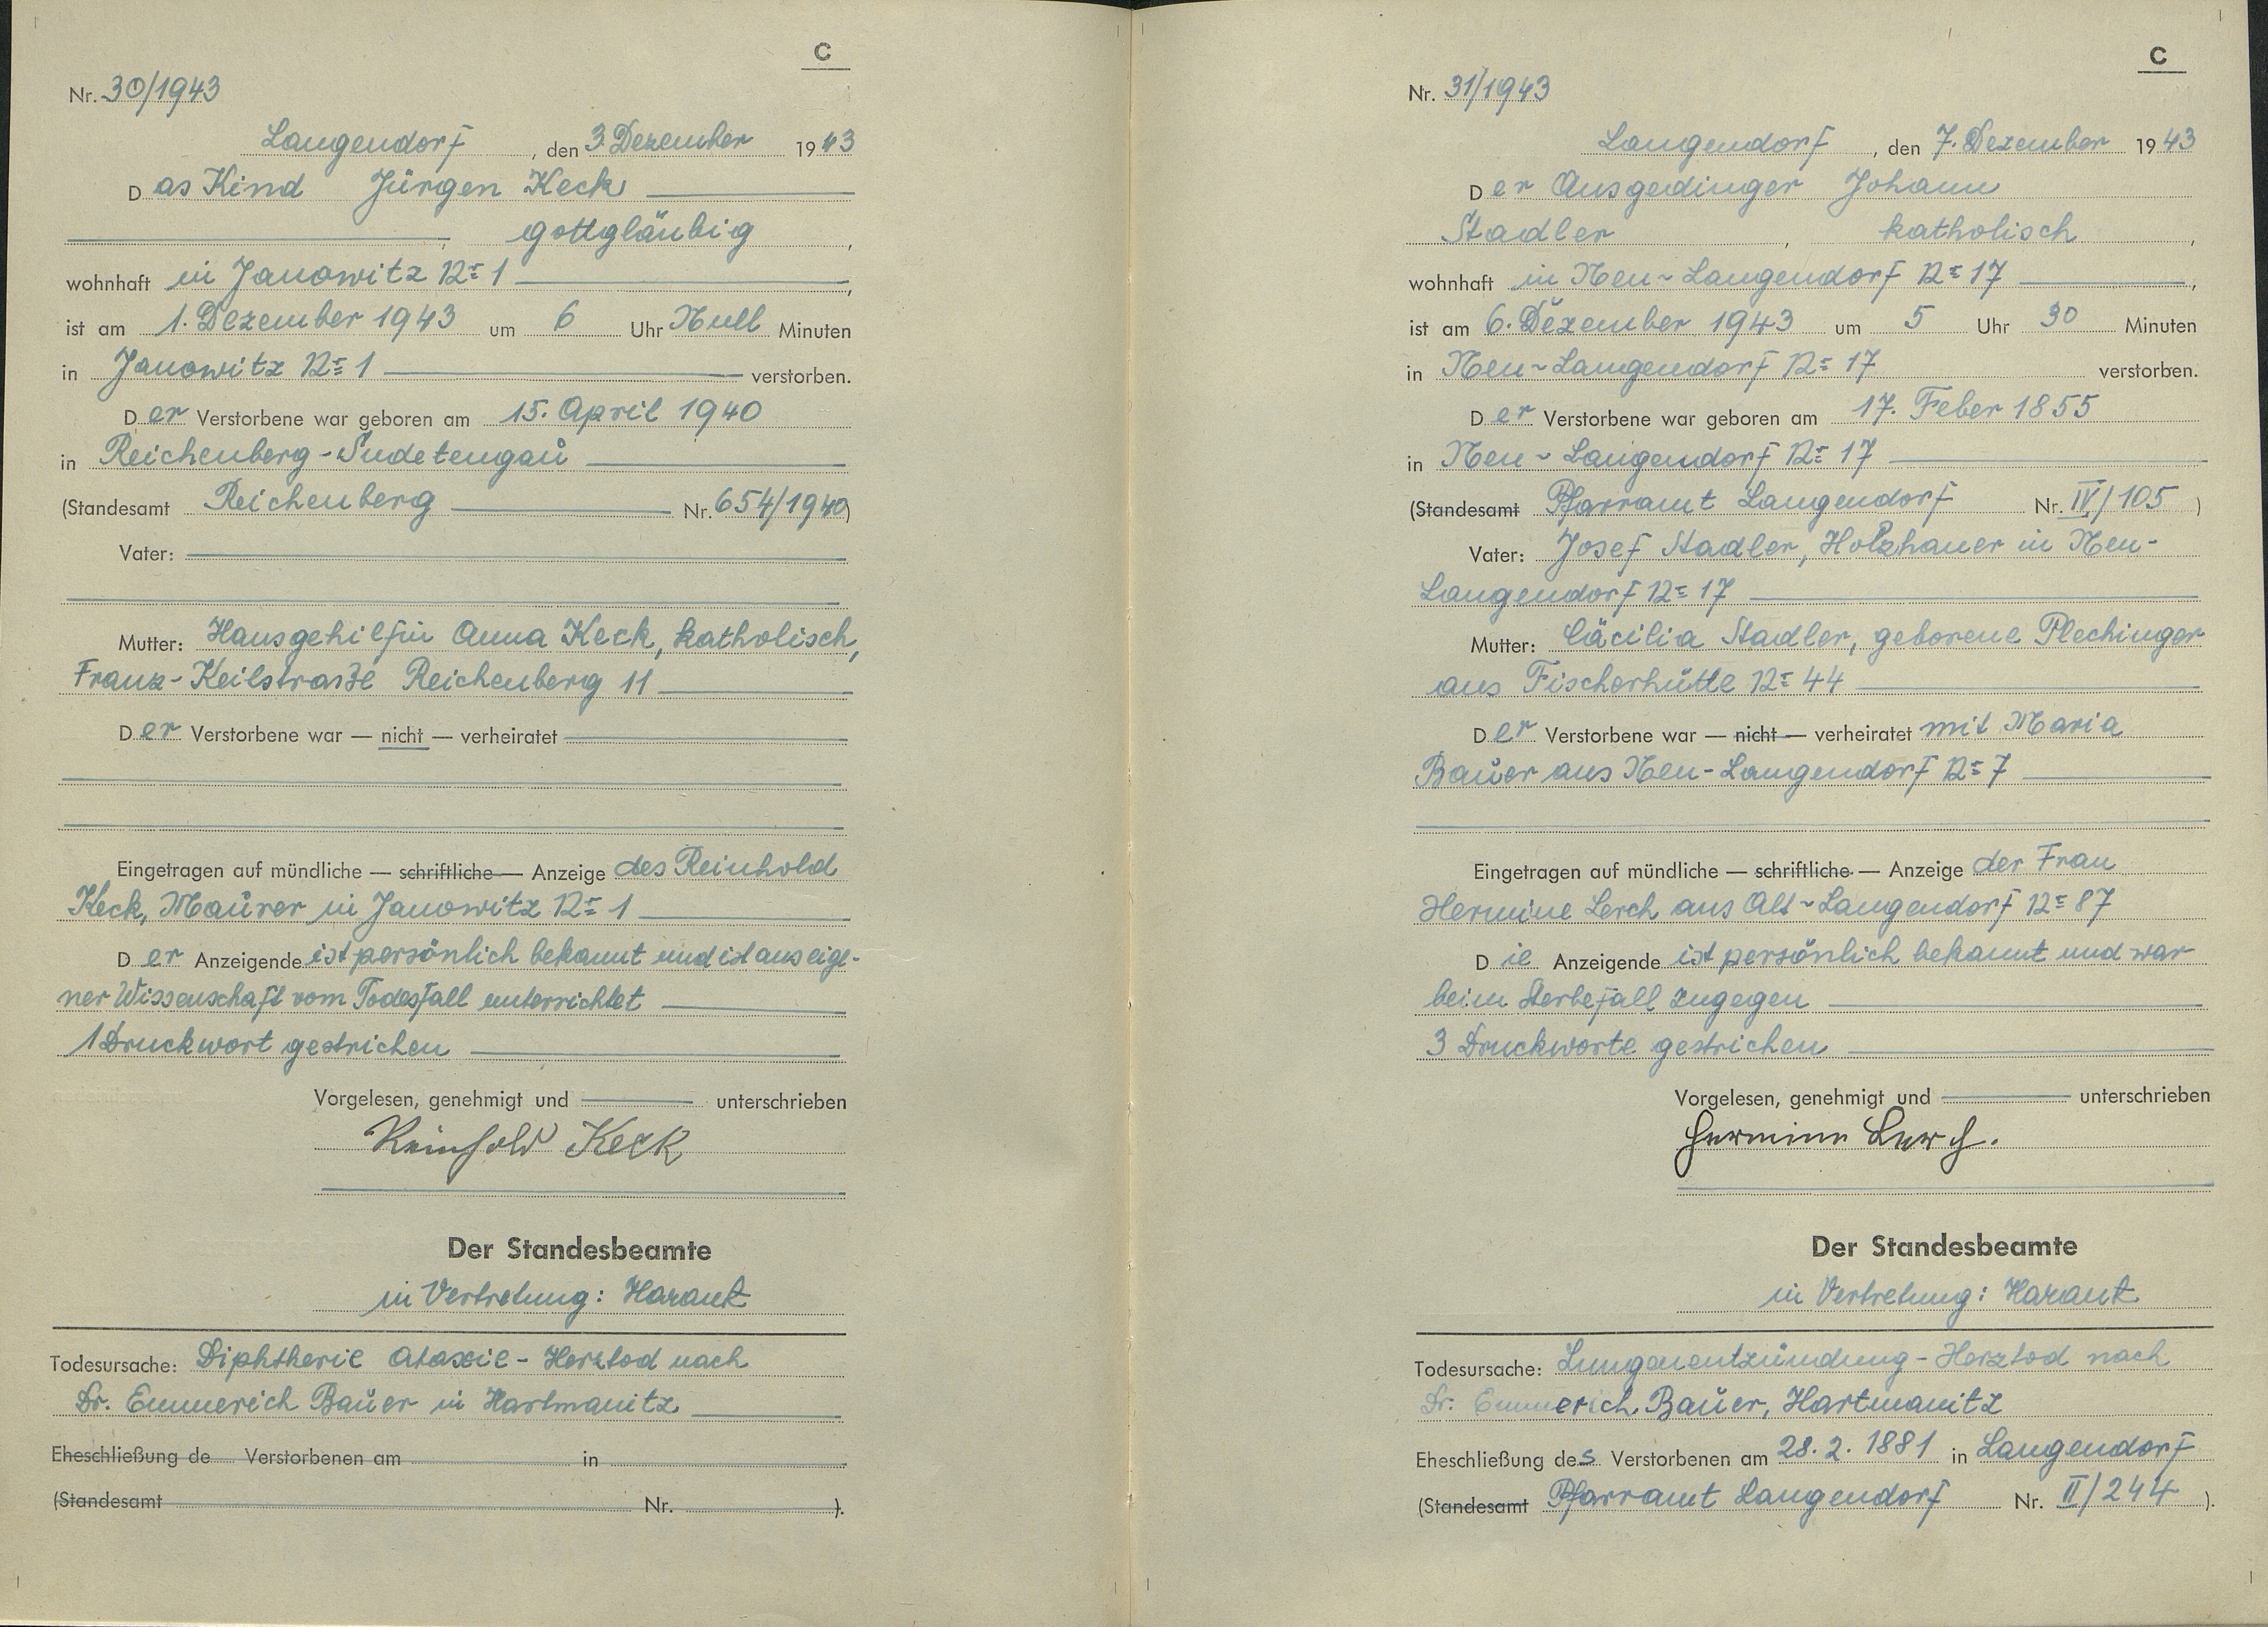 C
Nr. 30/1943
Langendorf, den 3. Dezember 1943
Das Kind Jürgen Keck
gottgläubig,
wohnhaft in Janowitz № 1,
ist am 1. Dezember 1943 um 6 Uhr Null Minuten
in Janowitz № 1 verstorben.
Der Verstorbene war geboren am 15. April 1940
in Reichenberg-Sudetengau
(Standesamt Reichenberg Nr. 654/1940)
Vater:
Mutter: Hausgehilfin Anna Keck, katholisch,
Franz-Keilstraße Reichenberg 11
Der Verstorbene war — nicht — verheiratet
Eingetragen auf mündliche — schriftliche — Anzeige des Reinhold
Keck, Maurer in Janowitz № 1
Der Anzeigende ist persönlich bekannt und ist aus eige-
ner Wissenschaft vom Todesfall unterrichtet
1 Druckwort gestrichen
Vorgelesen, genehmigt und unterschrieben
Reinhold Keck
Der Standesbeamte
in Vertretung: Harant
Todesursache: Diphtherie Ataxie - Herztod nach
Dr. Emmerich Bauer in Hartmanitz
Eheschließung de Verstorbenen am in
(Standesamt Nr. ).
C
Nr. 31/1943
Langendorf, den 7. Dezember 1943
Der Ausgedinger Johann
Stadler, katholisch,
wohnhaft in Neu-Langendorf № 17,
ist am 6. Dezember 1943 um 5 Uhr 30 Minuten
in Neu-Langendorf № 17 verstorben.
Der Verstorbene war geboren am 17. Feber 1855
in Neu-Langendorf № 17
(Standesamt Pfarramt Langendorf Nr. IV/105)
Vater: Josef Stadler, Holzhauer in Neu-
Langendorf № 17
Mutter: Cäcilia Stadler, geborene Plechinger
aus Fischerhütte № 44
Der Verstorbene war — nicht — verheiratet mit Maria
Bauer aus Neu-Langendorf № 7
Eingetragen auf mündliche — schriftliche — Anzeige der Frau
Hermine Lerch aus Alt-Langendorf № 87
Die Anzeigende ist persönlich bekannt und war
beim Sterbefall zugegen
3 Druckworte gestrichen
Vorgelesen, genehmigt und unterschrieben
Hermine Lerch.
Der Standesbeamte
in Vertretung: Harant
Todesursache: Lungenentzündung - Herztod nach
Dr. Emmerich Bauer, Hartmanitz
Eheschließung des Verstorbenen am 28. 2. 1881 in Langendorf
(Standesamt Pfarramt Langendorf Nr. II/244 ).